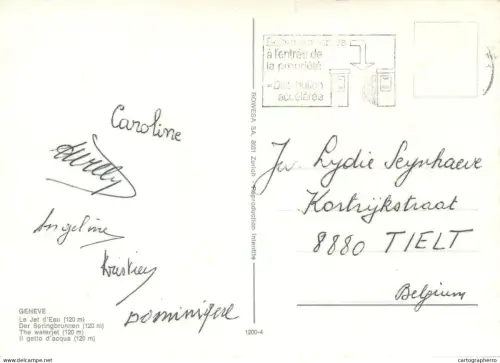 à l'entrée de
la propriété
= Distribution
accélérée
Caroline
Willy
Angeline
Kristien
Dominique
Lydie Seynhaeve
Kortrijkstraat
8880 TIELT
Belgium
ROWESA SA, 8021 Zürich - Reproduction interdite
GENEVE
Le Jet d'Eau (120 m)
Der Springbrunnen (120 m)
The waterjet (120 m)
Il getto d'acqua (120 m)
1200-4
www.delcampe.net
collectionshowroom